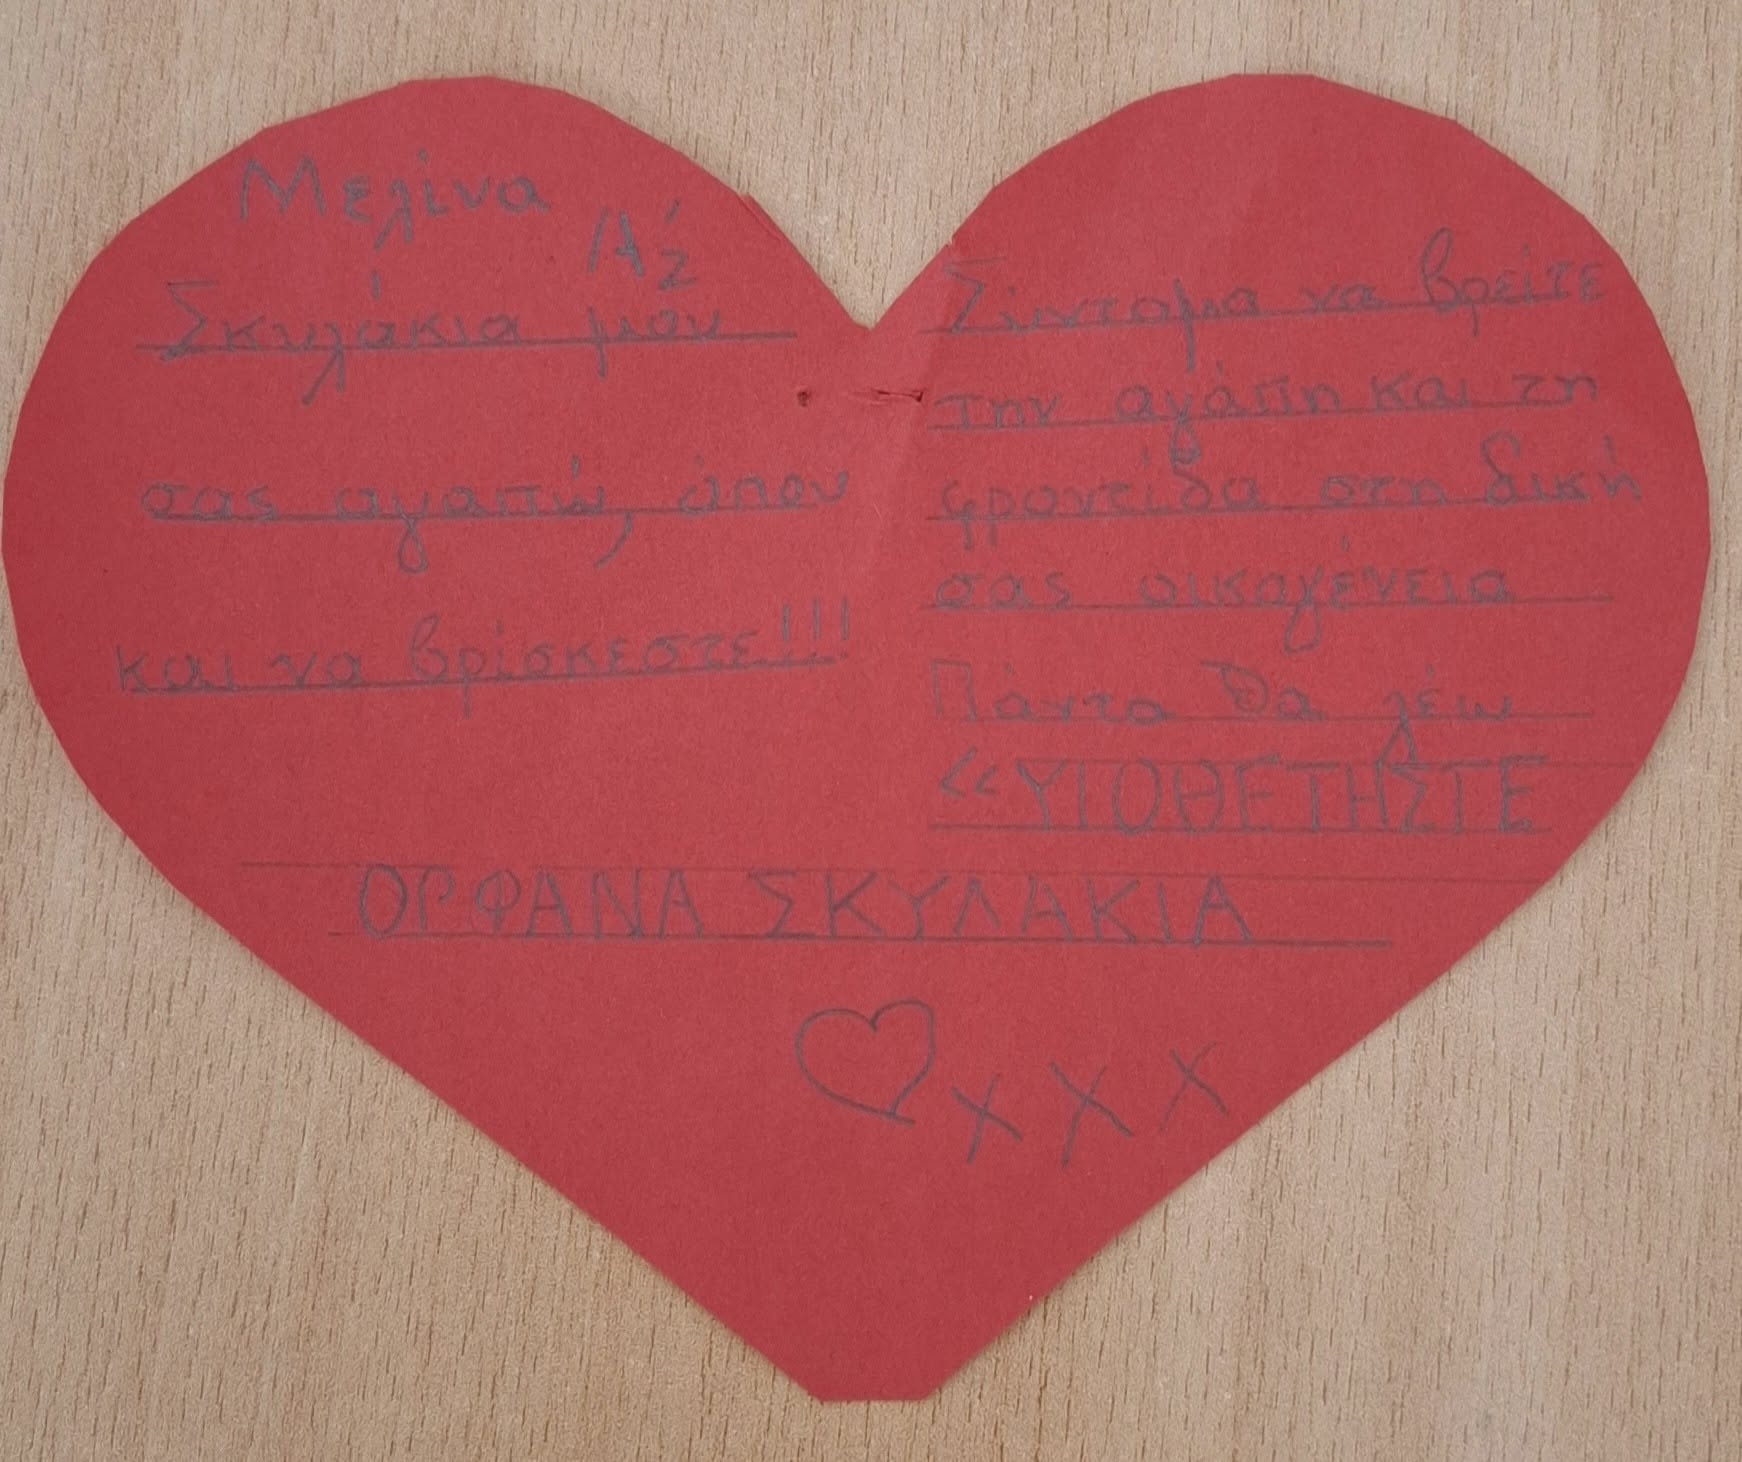 Μελίνα
Α΄2
Σκυλάκια μου
σας αγαπώ, όπου
και να βρίσκεστε!!!
Σύντομα να βρείτε
την αγάπη και τη
φροντίδα στη δική
σας οικογένεια
Πάντα θα λέω
<<ΥΙΟΘΕΤΗΣΤΕ
ΟΡΦΑΝΑ ΣΚΥΛΑΚΙΑ
x x x